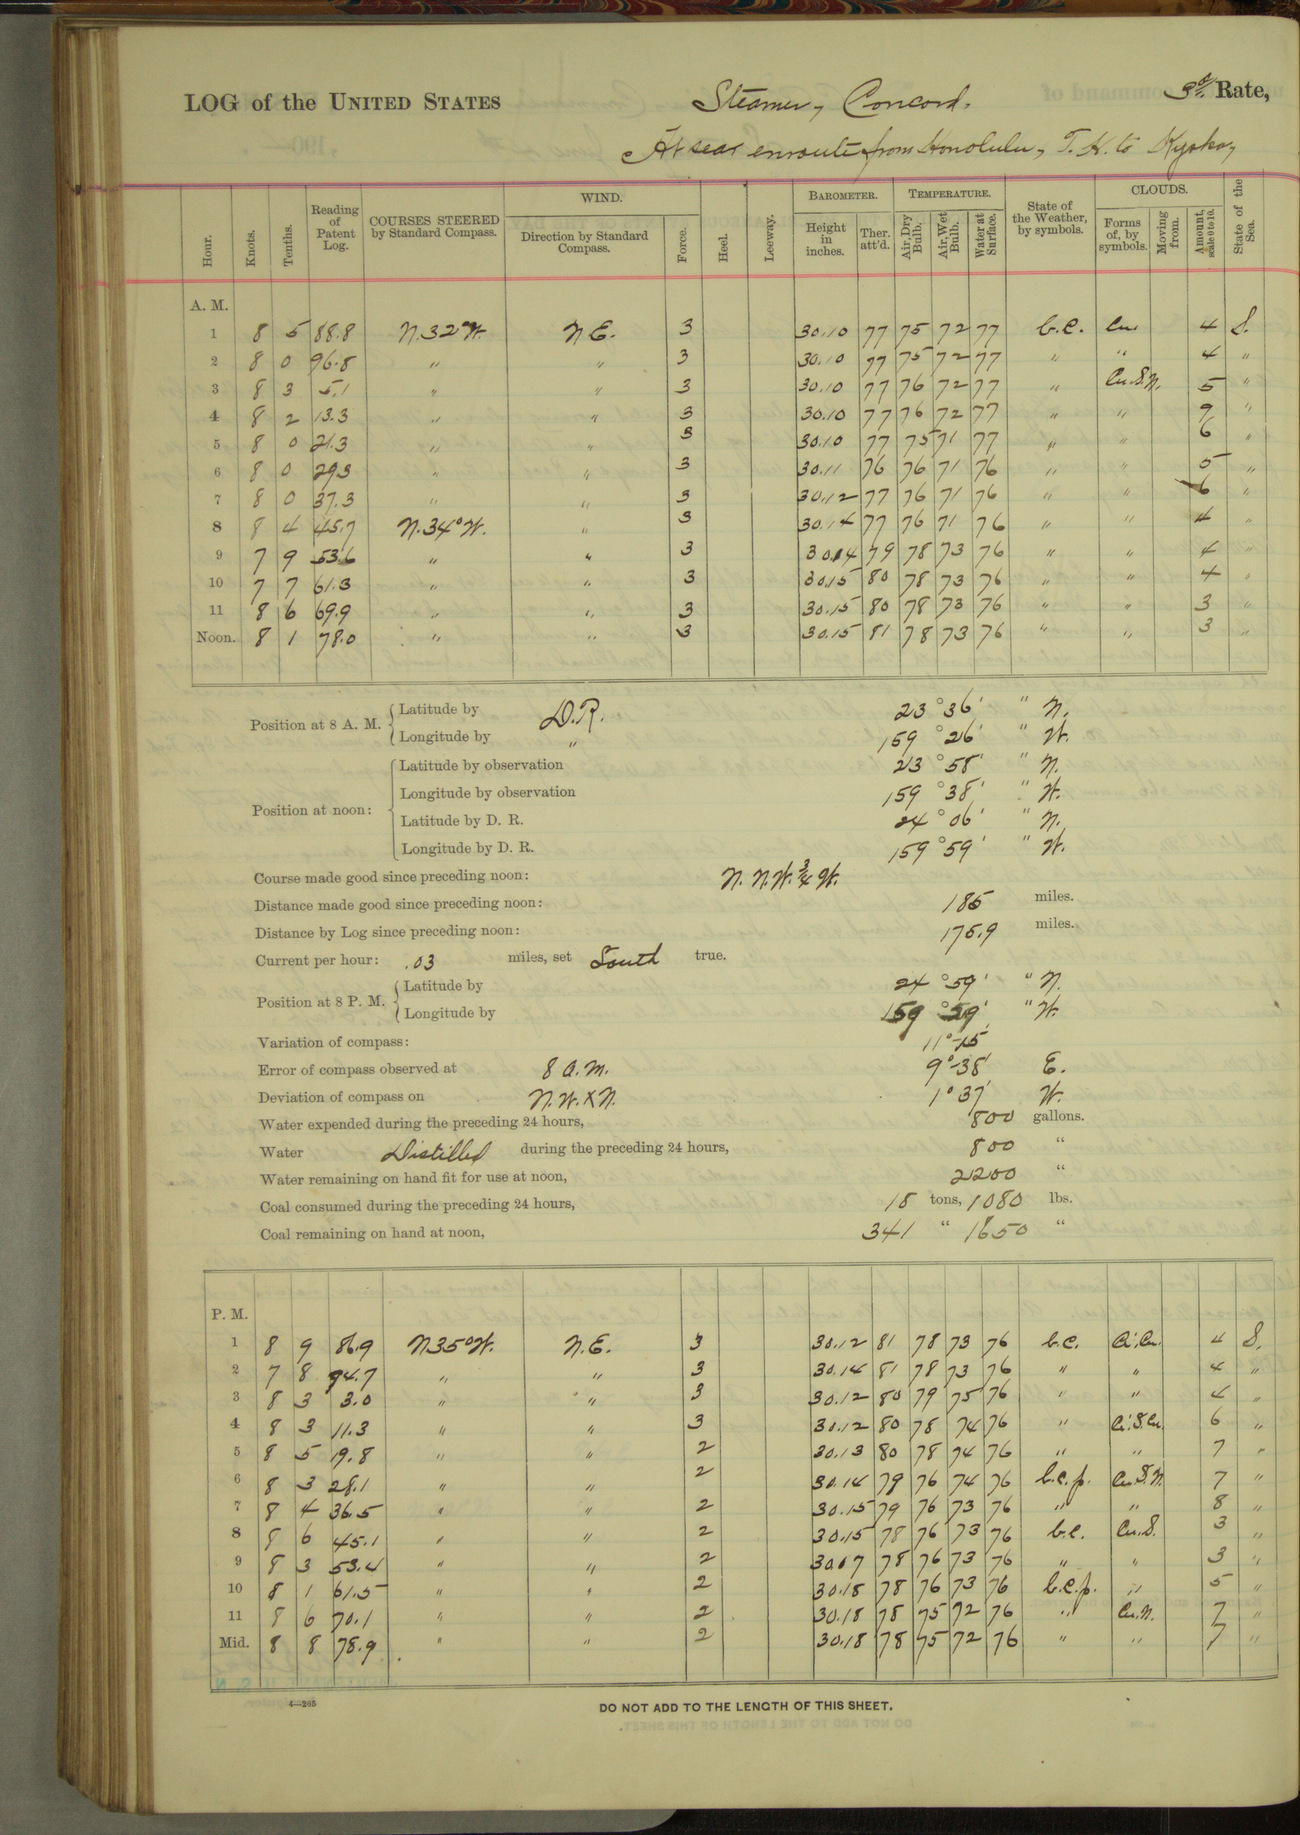 LOG of the UNITED STATES Steamer, Concord. 3d. Rate,
At sea enroute from Honolulu, T. H. to Kyska,
Hour. Knots. Tenths. Reading of Patent Log. COURSES STEERED by Standard Compass. WIND. Direction by Standard Compass. Force. Heel. Leeway. BAROMETER. Height in inches. Ther. att'd. TEMPERATURE. Air, Dry Bulb. Air, Wet Bulb. Water at Surface. State of the Weather, by symbols. CLOUDS. Forms of, by symbols. Moving from. Amount, scale 0 to 10. State of the Sea.
A. M.
1 8 5 88.8 N.32°W. N E. 3 30.10 77 75 72 77 b.c. Cu 4 S.
2 8 0 96.8 " " 3 30.10 77 75 72 77 " " 4 "
3 8 3 5.1 " " 3 30.10 77 76 72 77 " Cu.S.N. 5 "
4 8 2 13.3 " " 3 30.10 77 76 72 77 " " 9 "
5 8 0 21.3 " " 3 30.10 77 75 71 77 " " 6 "
6 8 0 29.3 " " 3 30.11 76 76 71 76 " " 5 "
7 8 0 37.3 " " 3 30.12 77 76 71 76 " " 6 "
8 8 4 45.7 N.34°W. " 3 30.14 77 76 71 76 " " 4 "
9 7 9 53.6 " " 3 30.14 79 78 73 76 " " 4 "
10 7 7 61.3 " " 3 30.15 80 78 73 76 " " 4 "
11 8 6 69.9 " " 3 30.15 80 78 73 76 " " 3 "
Noon. 8 1 78.0 " " 3 30.15 81 78 73 76 " " 3 "
Position at 8 A. M. Latitude by D.R. 23 ° 36 ' " N.
Longitude by " 159 ° 26 ' " W.
Position at noon: Latitude by observation 23 ° 58 ' " N.
Longitude by observation 159 ° 38 ' " W.
Latitude by D. R. 24 ° 06 ' " N.
Longitude by D. R. 159 ° 59 ' " W.
Course made good since preceding noon: N. N.W. 3/4 W.
Distance made good since preceding noon: 185 miles.
Distance by Log since preceding noon: 175.9 miles.
Current per hour: .03 miles, set South true.
Position at 8 P. M. Latitude by 24 ° 59 ' " N.
Longitude by 159 ° 59 ' " W.
Variation of compass: 11°-15
Error of compass observed at 8 a.m. 9°-38' E.
Deviation of compass on N.W.XN. 1° 37' W.
Water expended during the preceding 24 hours, 800 gallons.
Water Distilled during the preceding 24 hours, 800 "
Water remaining on hand fit for use at noon, 2200 "
Coal consumed during the preceding 24 hours, 18 tons, 1080 lbs.
Coal remaining on hand at noon, 341 " 1650 "
P. M.
1 8 9 86.9 N35°W. N.E. 3 30.12 81 78 73 76 b.c. Ci.Cu. 4 S.
2 7 8 94.7 " " 3 30.14 81 78 73 76 " " 4 "
3 8 3 3.0 " " 3 30.12 80 79 75 76 " " 4 "
4 8 3 11.3 " " 3 30.12 80 78 74 76 " Ci.S.Cu. 6 "
5 8 5 19.8 " " 2 30.13 80 78 74 76 " " 7 "
6 8 3 28.1 " " 2 30.14 79 76 74 76 b.c.p. Cu.S.N. 7 "
7 8 4 36.5 " " 2 30.15 79 76 73 76 " " 8 "
8 8 6 45.1 " " 2 30.15 78 76 73 76 b.c. Cu.S. 3 "
9 8 3 53.4 " " 2 30.17 78 76 73 76 " " 3 "
10 8 1 61.5 " " 2 30.18 78 76 73 76 b.c.p. " 5 "
11 8 6 70.1 " " 2 30.18 78 75 72 76 " Cu.N. 7 "
Mid. 8 8 78.9 " " 2 30.18 78 75 72 76 " " 7 "
4—265
DO NOT ADD TO THE LENGTH OF THIS SHEET.